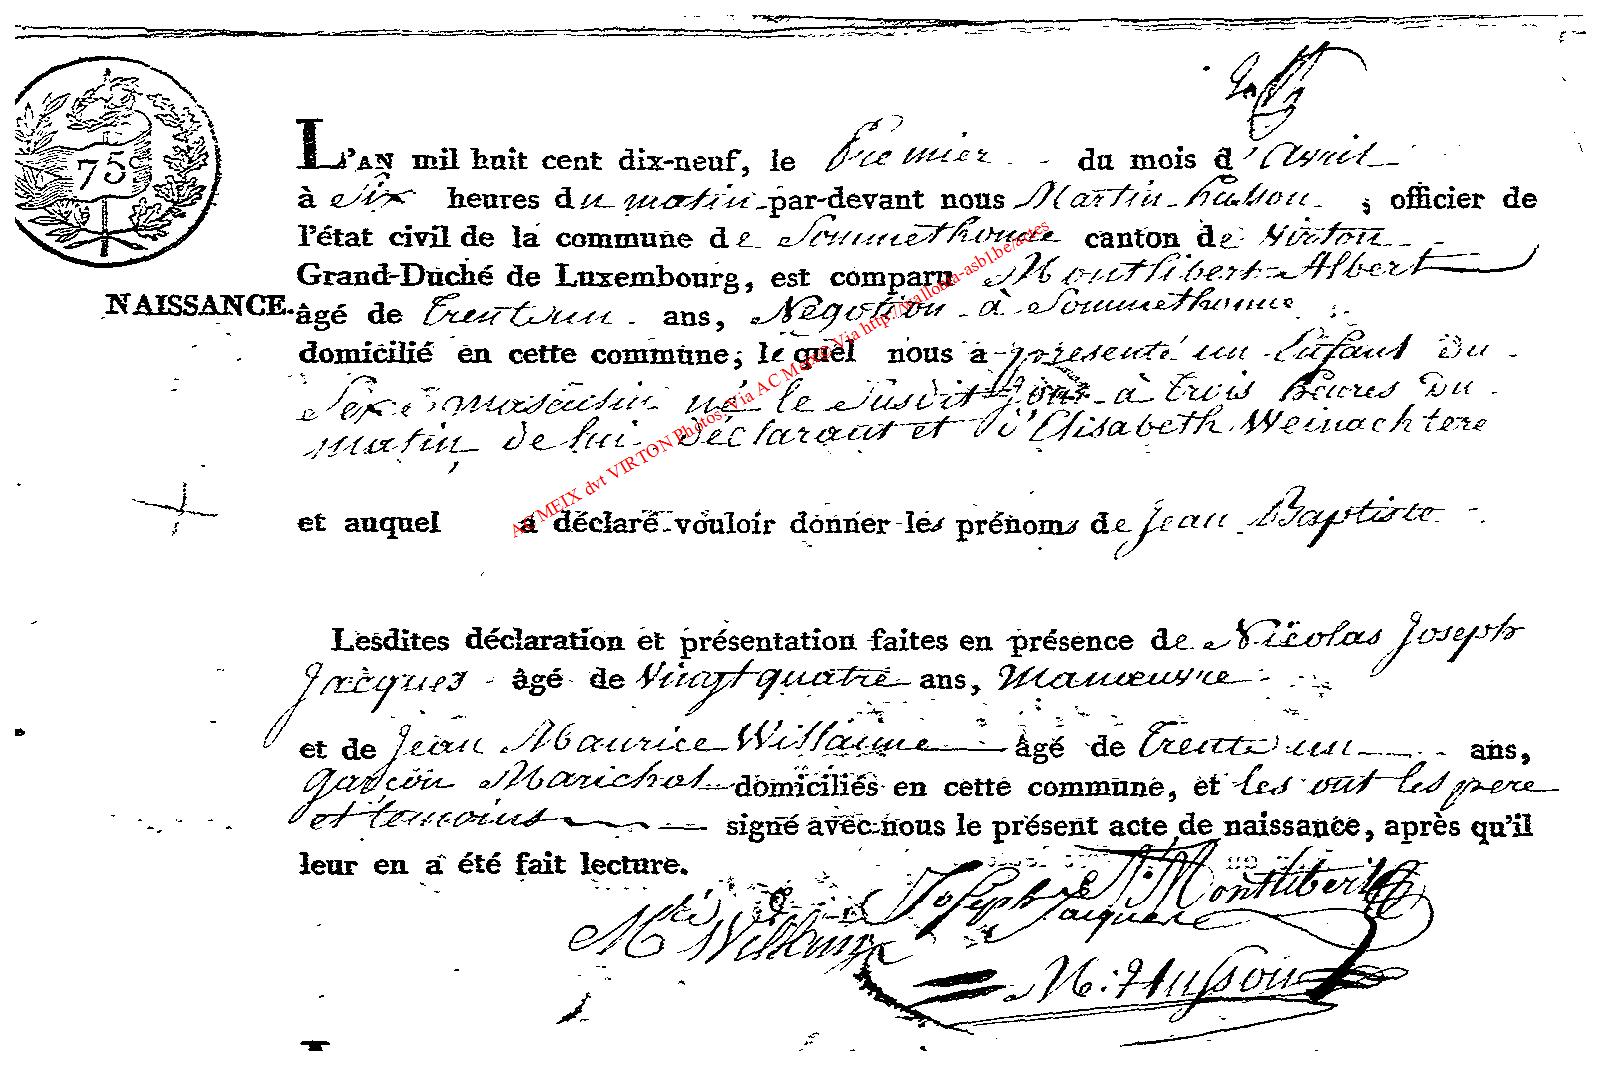 75 c
L'AN mil huit cent dix-neuf, le Premier du mois d'Avril
à Six heures du matin par-devant nous Martin husson, officier de
l'état civil de la commune de Sommethonne canton de Virton
Grand-Duché de Luxembourg, est comparu Montlibert Albert
NAISSANCE.
âgé de trent'un ans, Négotian à Sommethonne
domicilié en cette commune, lequel nous a presenté un Enfant Du
Sexe masculin né le Susdit Jour à trois heures Du
matin de lui Déclarant et D'Elisabeth Weinachtere
et auquel a déclaré vouloir donner les prénoms de Jean Baptiste
Lesdites déclaration et présentation faites en présence de Nicolas Joseph
Jacques âgé de Vingt quatre ans, Manœuvre
et de Jean Maurice Willaime âgé de trente un ans,
garçon Marichal domiciliés en cette commune, et les ont les pere
et temoins signé avec nous le présent acte de naissance, après qu'il
leur en a été fait lecture.
Montlibert
Joseph Jacques
M:Husson
AC MEIX dvt VIRTON Photos: Via AC MEIX Via http://wallonia-asbl.be/actes